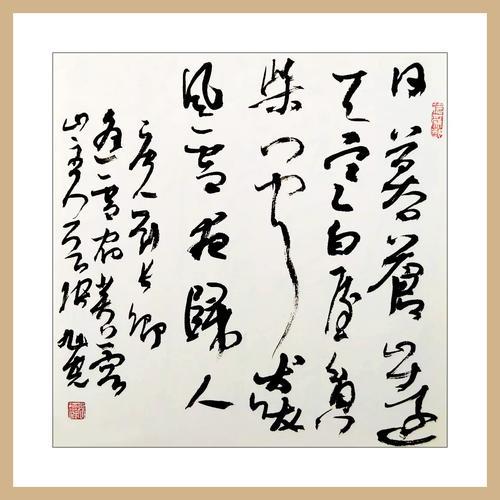 日暮蒼山遠
天寒白屋貧
柴门闻犬吠
風雪夜歸人
唐人劉長卿
逢雪宿芙蓉
山主人